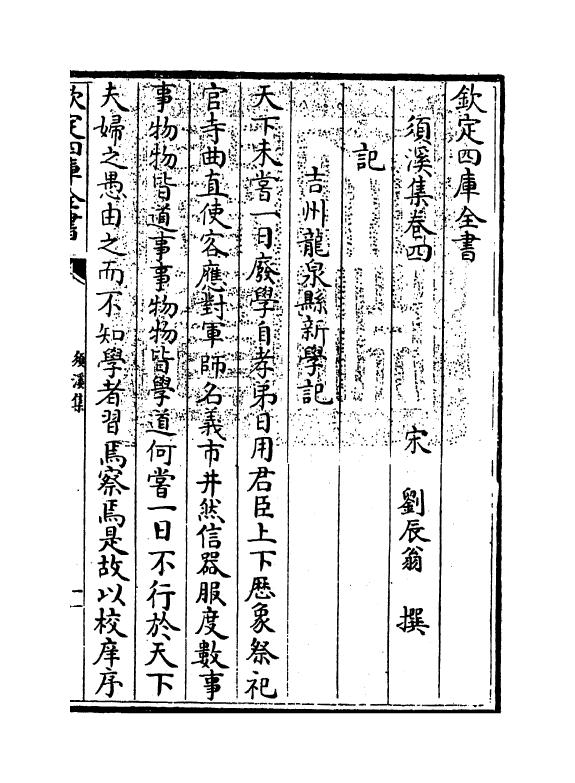 欽定四庫全書
須溪集卷四
宋 劉辰翁 撰
記
吉州龍泉縣新學記
天下未嘗一日廢學自孝弟日用君臣上下厯象祭祀
官寺曲直使客應對軍師名義市井然信器服度數事
事物物皆道事事物物皆學道何嘗一日不行於天下
夫婦之愚由之而不知學者習焉察焉是故以校庠序
欽定四庫全書
須溪集
一